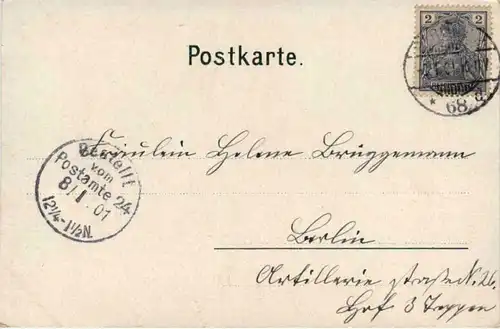 Postkarte.
2
* 68 a.
Fräulein Helene Brüggemann
Bestellt
vom
Postamte 24
8/1.01
12¼-1½N.
Berlin
Artillerie straße N. 26.
Hof 3 Treppen